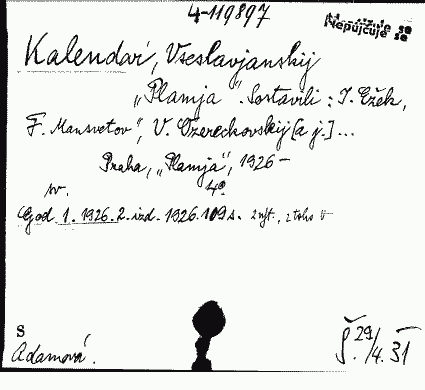 4-119897
Nepůjčuje se
Kalendář, Vseslavjanskij
„Plamja". Sostavili: I. Ežek,
F. Mansvetov, V. Ozereckovskij [a j.] ...
Praha, „Plamja", 1926 –
4°
sv.
God. 1. 1926. 2. izd. 1926. 109 s.
S
Adamová.
29/4. 31